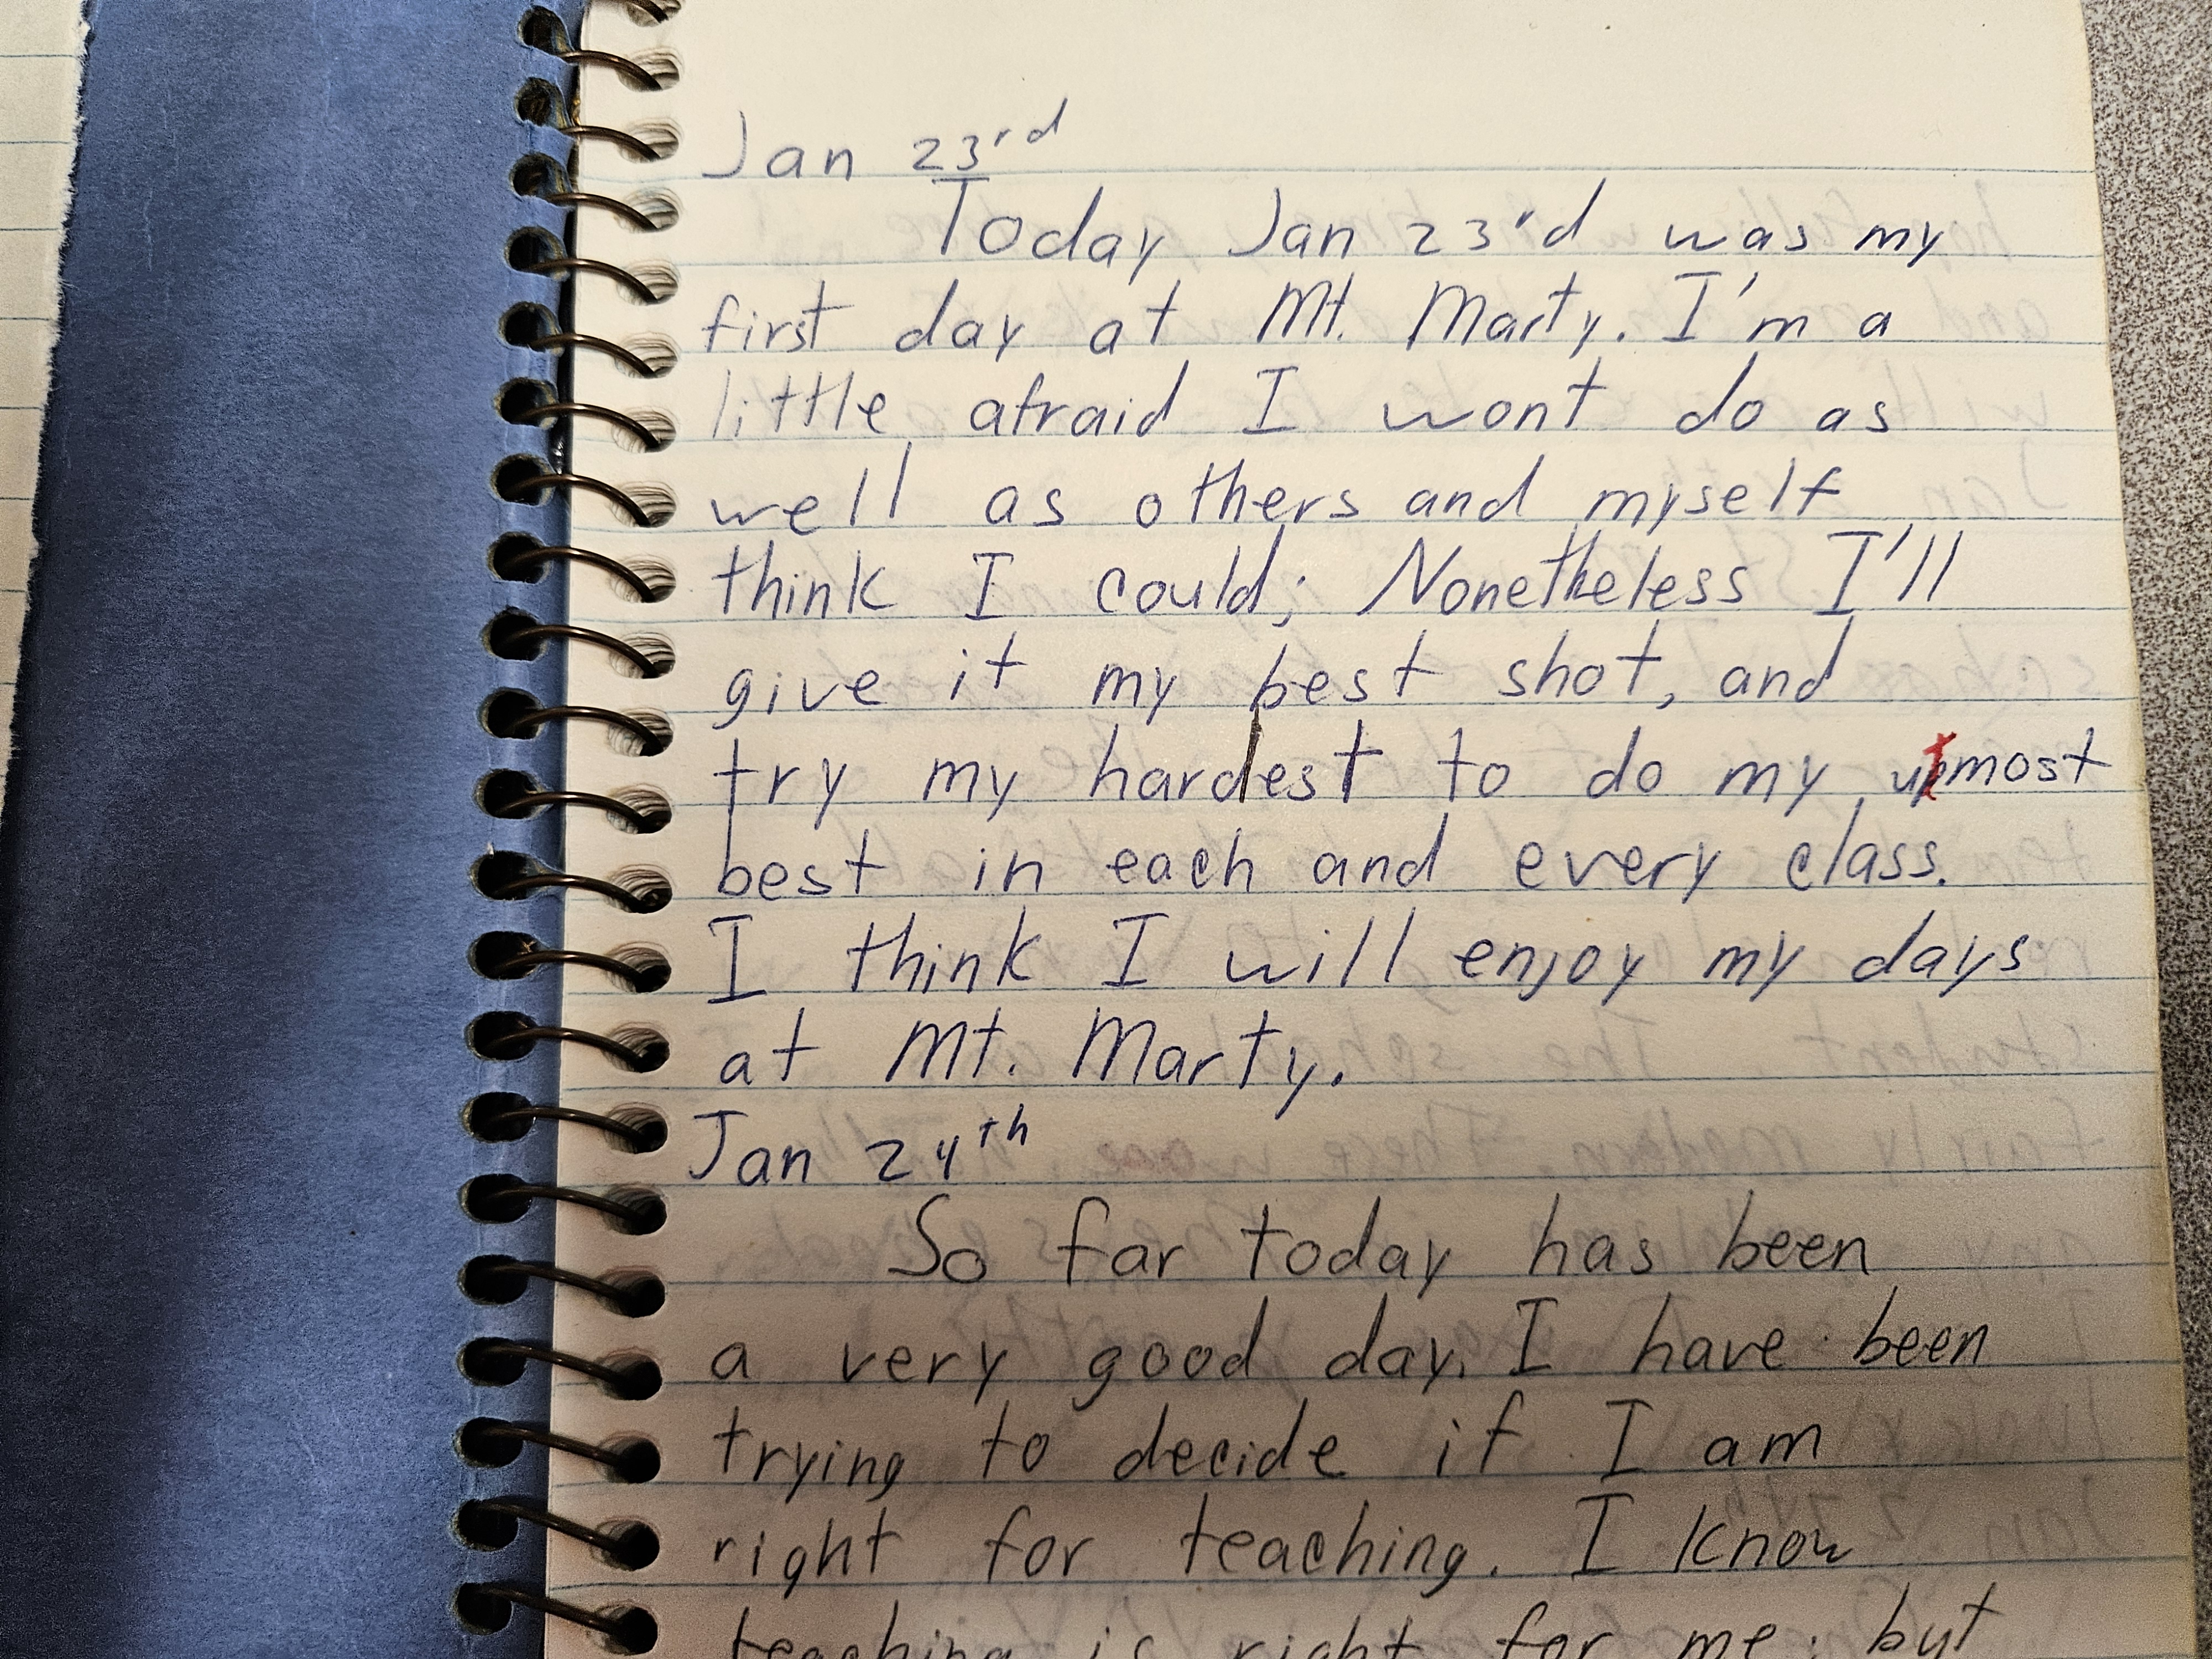 Jan 23rd
Today Jan 23rd was my
first day at Mt. Marty. I'm a
little afraid I wont do as
well as others and myself
think I could; Nonetheless I'll
give it my best shot, and
try my hardest to do my utmost
best in each and every class.
I think I will enjoy my days
at Mt. Marty.
Jan 24th
So far today has been
a very good day. I have been
trying to decide if I am
right for teaching. I know
teaching is right for me; but